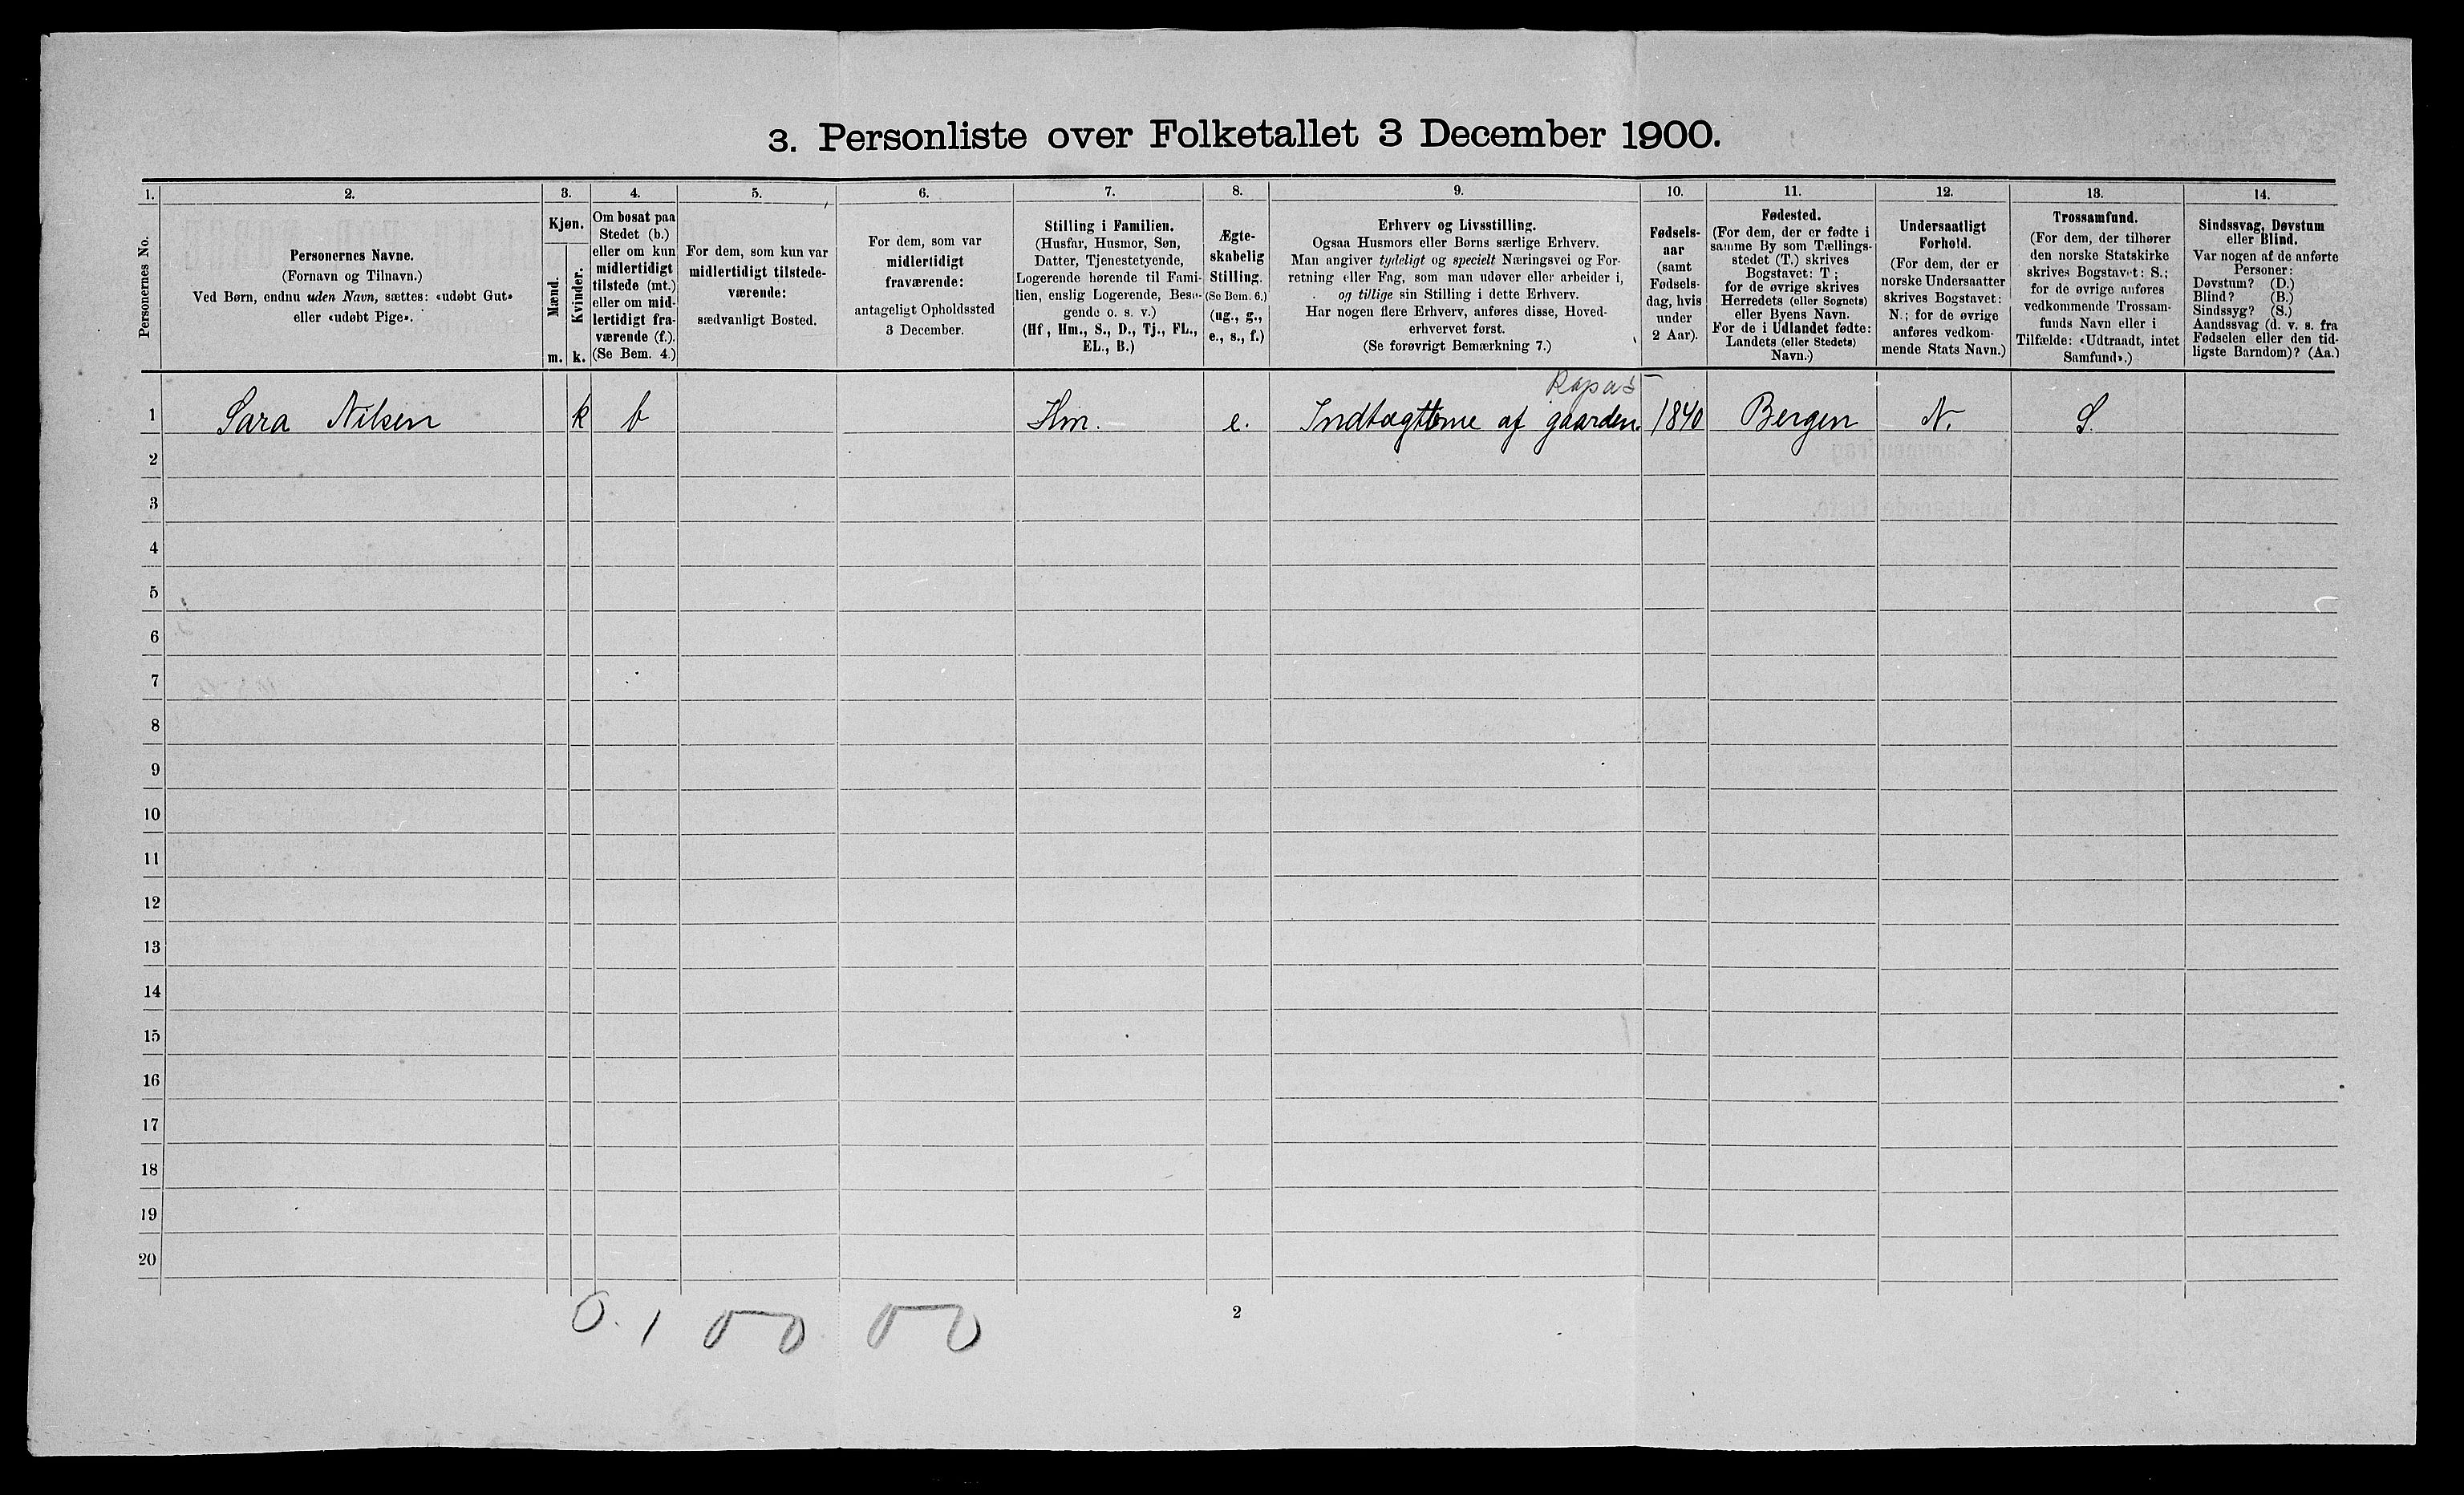 3. Personliste over Folketallet 3 December 1900.
1. 2. 3. 4. 5. 6. 7. 8. 9. 10. 11. 12. 13. 14.
Personernes No.
Personernes Navne.
(Fornavn og Tilnavn.)
Ved Børn, endnu uden Navn, sættes: «udøbt Gut»
eller «udøbt Pige».
Kjøn.
Mænd.
Kvinder.
m. k.
Om bosat paa
Stedet (b.)
eller om kun
midlertidigt
tilstede (mt.)
eller om mid-
lertidigt fra-
værende (f.).
(Se Bem. 4.)
For dem, som kun var
midlertidigt tilstede-
værende:
sædvanligt Bosted.
For dem, som var
midlertidigt
fraværende:
antageligt Opholdssted
3 December.
Stilling i Familien.
(Husfar, Husmor, Søn,
Datter, Tjenestetyende,
Logerende hørende til Fami-
lien, enslig Logerende, Besø-
gende o. s. v.)
(Hf, Hm., S., D., Tj., FL.,
EL., B.)
Ægte-
skabelig
Stilling.
(Se Bem. 6.)
(ug., g.,
e., s., f.)
Erhverv og Livsstilling.
Ogsaa Husmors eller Børns særlige Erhverv.
Man angiver tydeligt og specielt Næringsvei og For-
retning eller Fag, som man udøver eller arbeider i,
og tillige sin Stilling i dette Erhverv.
Har nogen flere Erhverv, anføres disse, Hoved-
erhvervet først.
(Se forøvrigt Bemærkning 7.)
Fødsels-
aar
(samt
Fødsels-
dag, hvis
under
2 Aar).
Fødested.
(For dem, der er fødte i
samme By som Tællings-
stedet (T.) skrives
Bogstavet: T;
for de øvrige skrives
Herredets (eller Sognets)
eller Byens Navn.
For de i Udlandet fødte:
Landets (eller Stedets)
Navn.)
Undersaatligt
Forhold.
(For dem, der er
norske Undersaatter
skrives Bogstavet:
N.; for de øvrige
anføres vedkom-
mende Stats Navn.)
Trossamfund.
(For dem, der tilhører
den norske Statskirke
skrives Bogstavet: S.;
for de øvrige anføres
vedkommende Trossam-
funds Navn eller i
Tilfælde: «Udtraadt, intet
Samfund».)
Sindssvag, Døvstum
eller Blind.
Var nogen af de anførte
Personer:
Døvstum? (D.)
Blind? (B.)
Sindssyg? (S.)
Aandssvag (d. v. s. fra
Fødselen eller den tid-
ligste Barndom)? (Aa.)
1 Sara Nilsen k b Hm. e. Indtægterne af gaarden. 1840 Bergen N. S.
2
3
4
5
6
7
8
9
10
11
12
13
14
15
16
17
18
19
20
0. 1 0 0 0 0
2